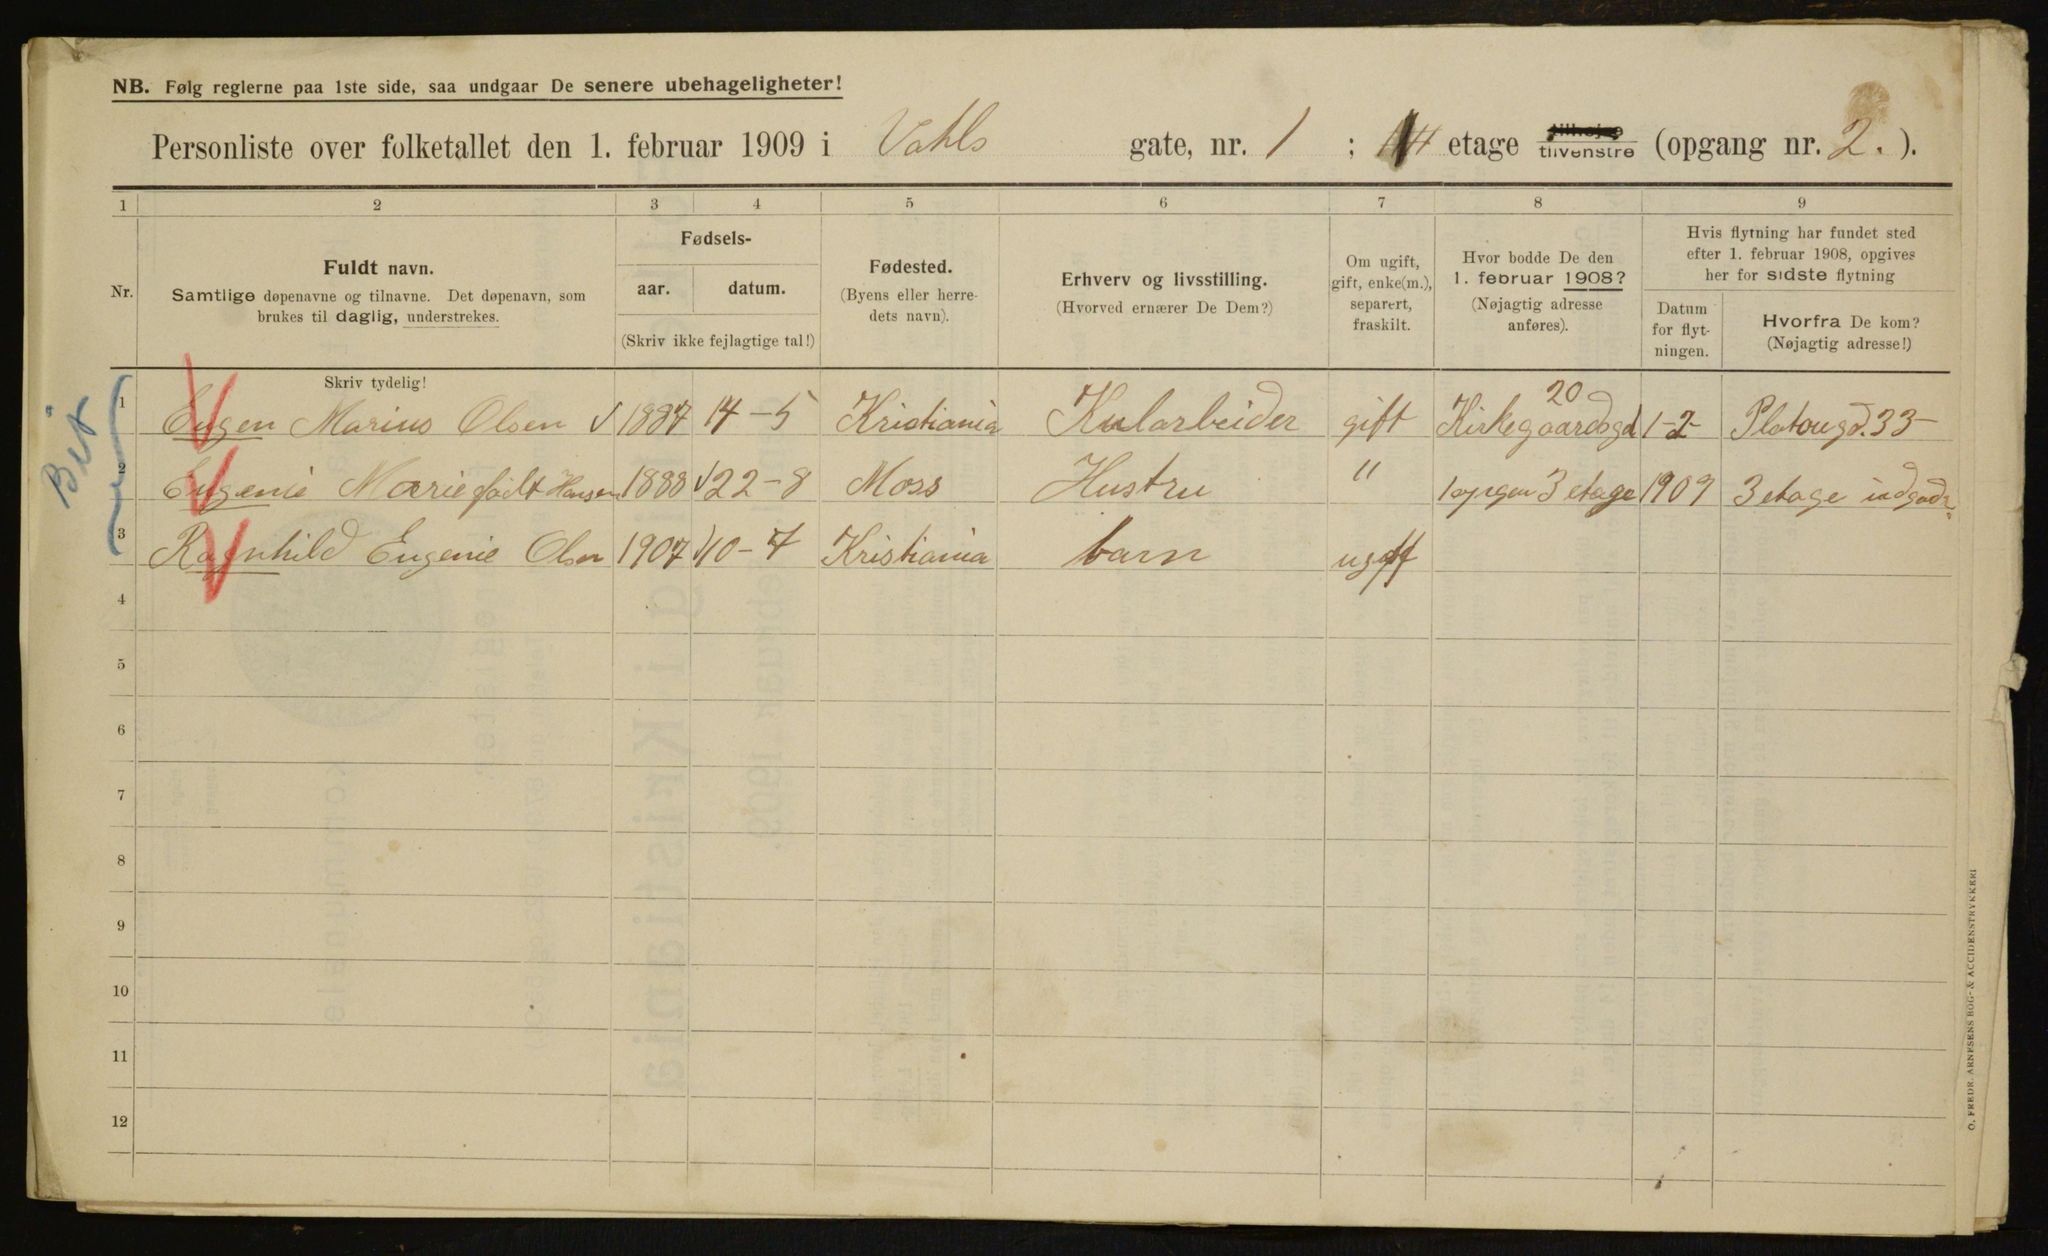 NB. Følg reglerne paa 1ste side, saa undgaar De senere ubehageligheter!
Personliste over folketallet den 1. februar 1909 i Vahls gate, nr. 1 ; etage tilhøjre tilvenstre (opgang nr. 2.).
1 2 3 4 5 6 7 8 9
Nr.
Fuldt navn.
Samtlige døpenavne og tilnavne. Det døpenavn, som
brukes til daglig, understrekes.
Skriv tydelig!
Fødsels-
aar. datum.
(Skriv ikke fejlagtige tal!)
Fødested.
(Byens eller herre-
dets navn).
Erhverv og livsstilling.
(Hvorved ernærer De Dem?)
Om ugift,
gift, enke(m.),
separert,
fraskilt.
Hvor bodde De den
1. februar 1908?
(Nøjagtig adresse
anføres).
Hvis flytning har fundet sted
efter 1. februar 1908, opgives
her for sidste flytning
Datum
for flyt-
ningen.
Hvorfra De kom?
(Nøjagtig adresse!)
1 Eugen Marius Olsen 1887 14-5 Kristiania Kularbeider gift Kirkegaardsgd 20 1-2- Platougd. 33-
2 Eugenie Marie født Hansen 1888 22-8 Moss Hustru " 3 etage 1909 3 etage
3 Ragnhild Eugenie Olsen 1907 10-7 Kristiania barn ugift
4
5
6
7
8
9
10
11
12
O. FREDR. ARNESENS BOG- & ACCIDENSTRYKKERI